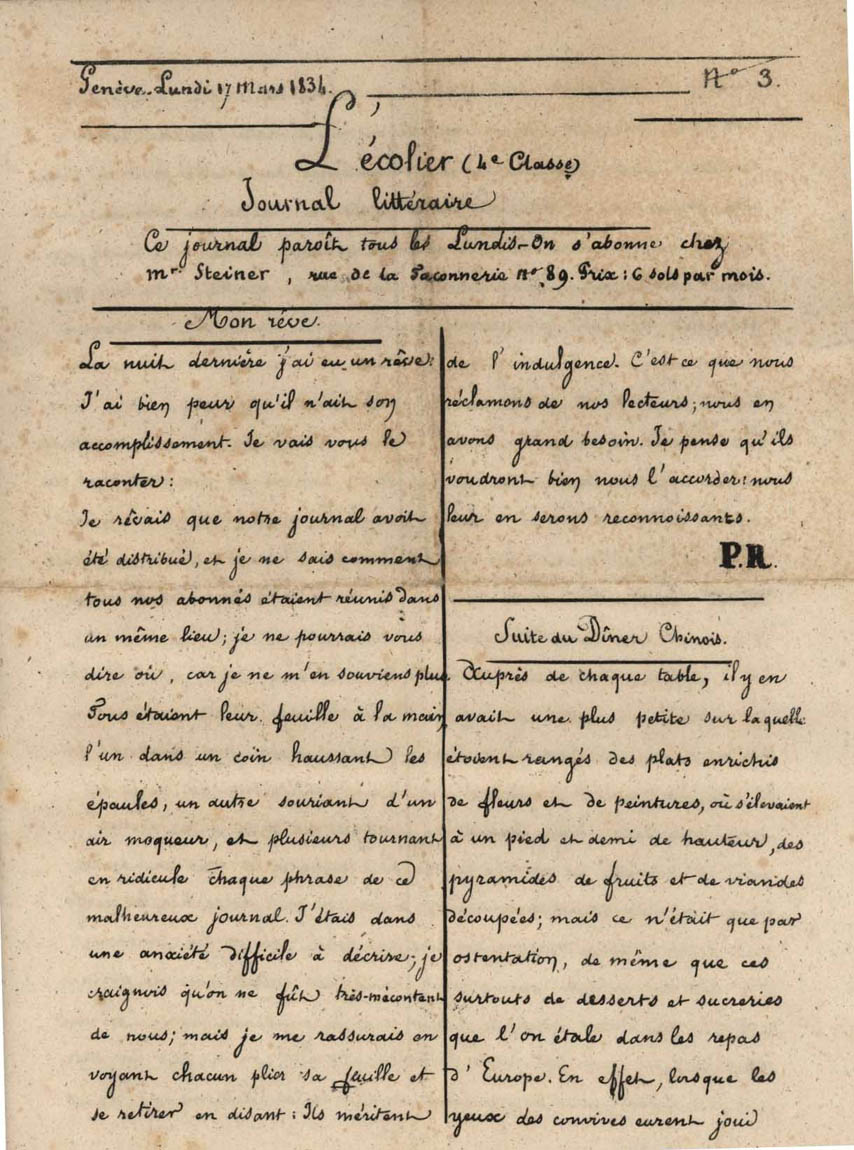 Genève. Lundi 17 Mars 1834.
No 3.
L'écolier (4e Classe)
Journal littéraire
Ce journal paroît tous les Lundis-On s'abonne chez
mr Steiner, rue de la Paconnerie No. 89. Prix: 6 sols par mois.
Mon rêve.
La nuit dernière j'ai eu un rêve:
J'ai bien peur qu'il n'ait son
accomplissement. Je vais vous le
raconter:
Je rêvais que notre journal avoit
été distribué, et je ne sais comment
tous nos abonnés étaient réunis dans
un même lieu; je ne pourrais vous
dire où, car je ne m'en souviens plus
Tous étaient leur feuille à la main,
l'un dans un coin haussant les
épaules, un autre souriant d'un
air moqueur, et plusieurs tournant
en ridicule chaque phrase de ce
malheureux journal. J'étais dans
une anxiété difficile à décrire; je
craignois qu'on ne fût très-mécontent
de nous; mais je me rassurais en
voyant chacun plier sa feuille et
se retirer en disant: Ils méritent
de l'indulgence. C'est ce que nous
réclamons de nos lecteurs; nous en
avons grand besoin. Je pense qu'ils
voudront bien nous l'accorder: nous
leur en serons reconnoissants.
P.R.
Suite du Dîner Chinois.
Auprès de chaque table, il y en
avait une plus petite sur laquelle
étoient rangés des plats enrichis
de fleurs et de peintures, où s'élevaient
à un pied et demi de hauteur, des
pyramides de fruits et de viandes
découpées; mais ce n'était que par
ostentation, de même que ces
surtouts de desserts et sucreries
que l'on étale dans les repas
d'Europe. En effet, lorsque les
yeux des convives eurent joui